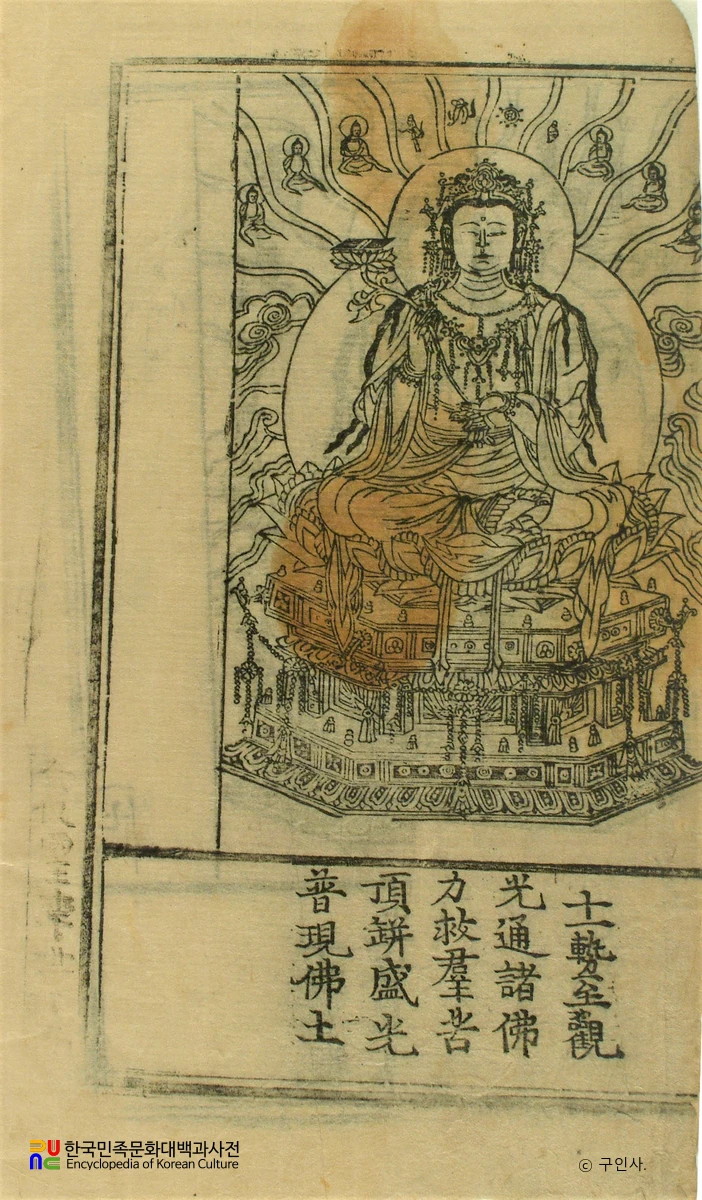 十一勢至觀
光通諸佛
力救羣苦
頂缾盛光
普現佛土
한국민족문화대백과사전
Encyclopedia of Korean Culture
© 구인사.